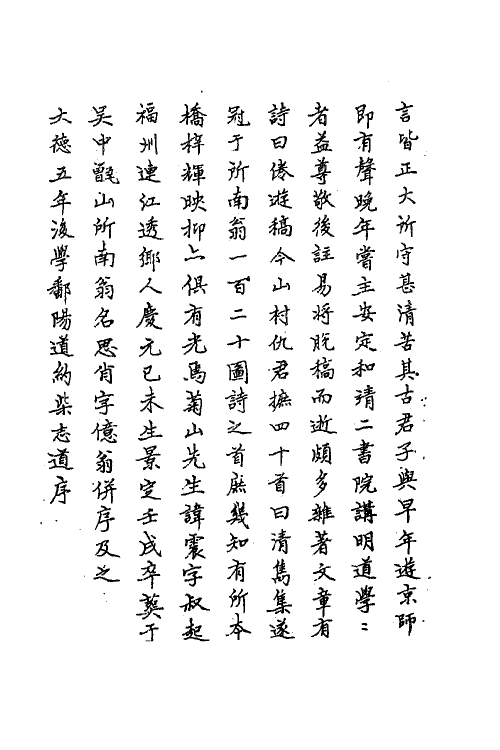 言皆正大所守甚清苦其古君子與早年遊京師
即有聲晚年嘗主安定和靖二書院講明道學〻
者益尊敬後註易將脫稿而逝頗多雜著文章有
詩曰倦遊稿今山村仇君摭四十首曰清雋集遂
冠于所南翁一百二十圖詩之首庶幾知有所本
橋梓輝映抑亦俱有光焉菊山先生諱震字叔起
福州連江透鄉人慶元己未生景定壬戌卒葬于
吳中甑山所南翁名思肖字億翁併序及之
大德五年後學鄱陽道納柴志道序